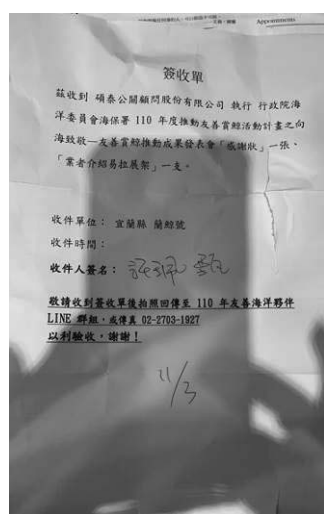 Appointments
簽收單
茲收到 碩泰公關顧問股份有限公司 執行 行政院海
洋委員會海保署 110 年度推動友善賞鯨活動計畫之向
海致敬—友善賞鯨推動成果發表會「感謝狀」一張、
「業者介紹易拉展架」一支。
收件單位: 宜蘭縣 蘭鯨號
收件時間:
收件人簽名:
敬請收到簽收單後拍照回傳至 110 年友善海洋夥伴
LINE 群組,或傳真 02-2703-1927
以利驗收,謝謝!
11/3